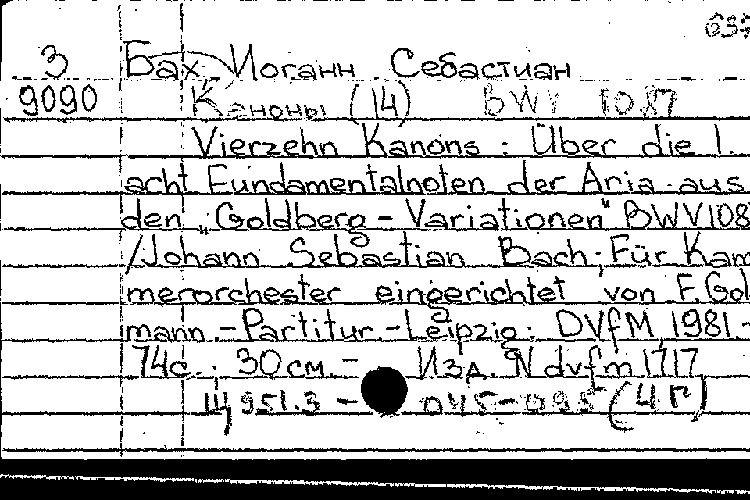 637
3 Бах, Иоганн Себастиан
9090 Каноны (14) BWV 1087
Vierzehn Kanons : Über die 1.
acht Fundamentalnoten der Aria aus
den „Goldberg-Variationen" BWV108
/Johann Sebastian Bach; Für Kam
merorchester eingerichtet von F. Gol
mann.-Partitur.-Leipzig: DVfM, 1981.-
74с.; 30см.- Изд. N dvfm 1717
Щ951.3 - 045-095 (4Г)